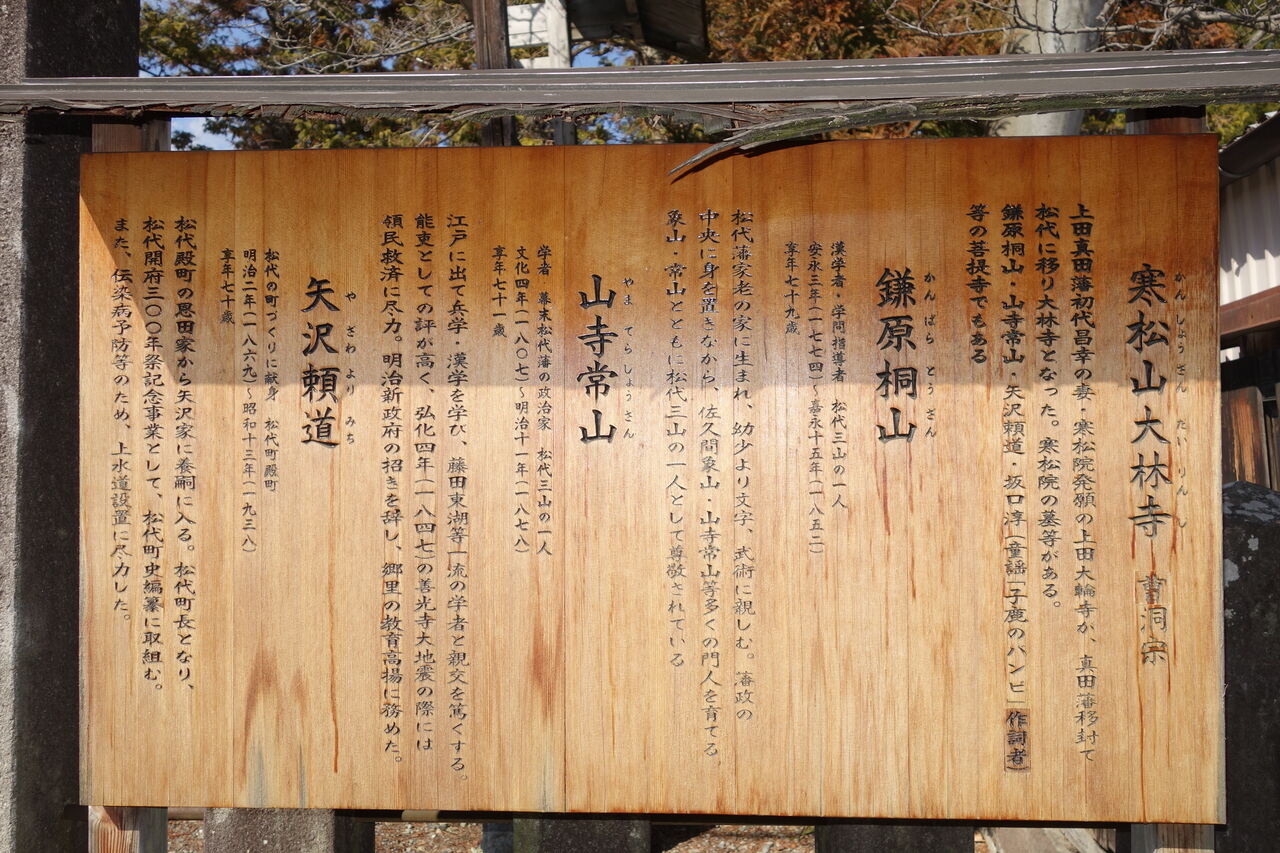 かんしょうざん だいりんじ
寒松山大林寺 曹洞宗
上田真田藩初代昌幸の妻・寒松院発願の上田大輪寺が、真田藩移封て
松代に移り大林寺となった。寒松院の墓等がある。
鎌原桐山・山寺常山・矢沢頼道・坂口淳(童謡「子鹿のバンビ」作詞者)
等の菩提寺でもある
かんばら とうざん
鎌原桐山
漢学者・学問指導者 松代三山の一人
安永三年(一七七四)~嘉永十五年(一八五二)
享年七十九歳
松代藩家老の家に生まれ、幼少より文字、武術に親しむ。藩政の
中央に身を置きながら、佐久間象山・山寺常山等多くの門人を育てる
象山・常山とともに松代三山の一人として尊敬されている
やまてらしょうざん
山寺常山
学者 幕末松代藩の政治家 松代三山の一人
文化四年(一八〇七)~明治十一年(一八七八)
享年七十一歳
江戸に出て兵学・漢学を学び、藤田東湖等一流の学者と親交を篤くする。
能吏としての評が高く、弘化四年(一八四七)の善光寺大地震の際には
領民救済に尽力。明治新政府の招きを辞し、郷里の教育高揚に務めた。
やざわ よりみち
矢沢頼道
松代の町づくりに献身 松代町殿町
明治二年(一八六九)~昭和十三年(一九三八)
享年七十歳
松代殿町の恩田家から矢沢家に養嗣に入る。松代町長となり、
松代開府三〇〇年祭記念事業として、松代町史編纂に取組む。
また、伝染病予防等のため、上水道設置に尽力した。